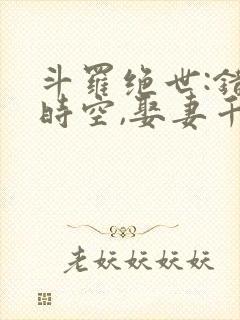 斗羅绝世:錯
時空,娶妻千
老妖妖妖妖